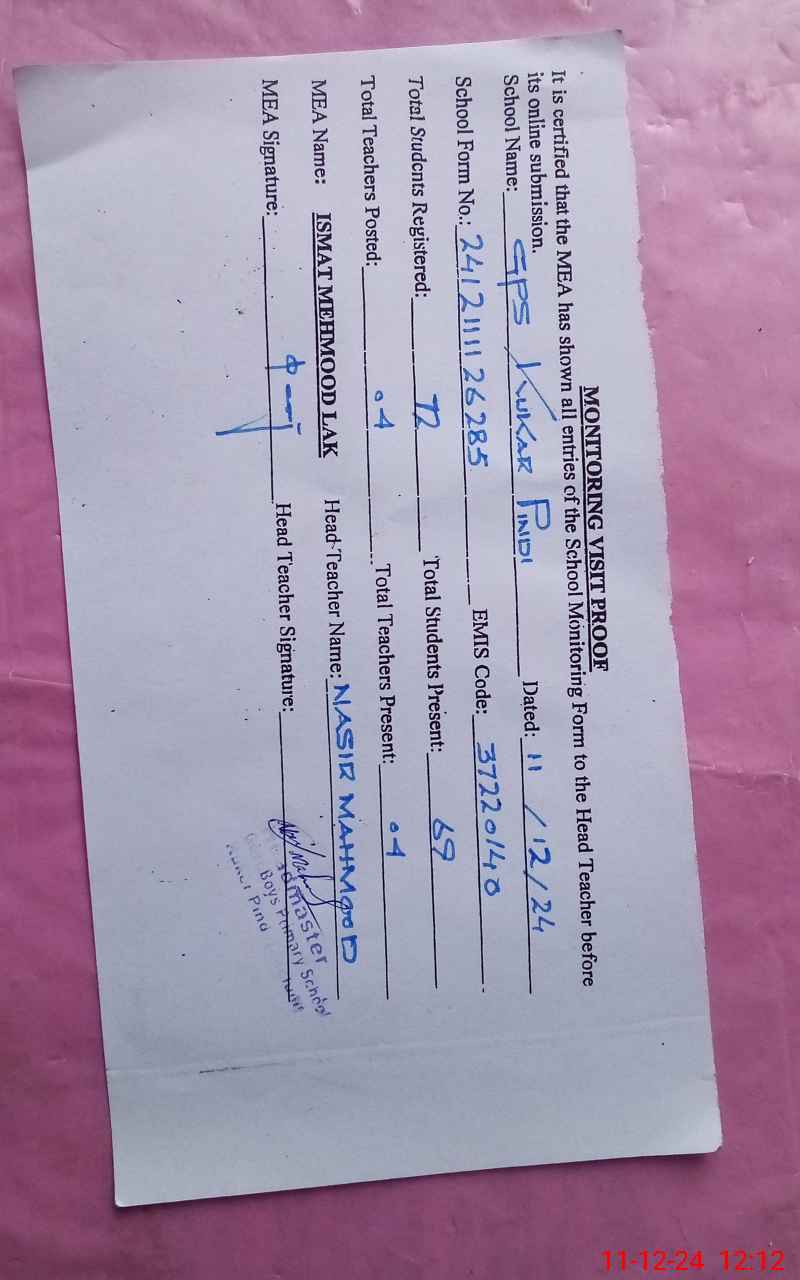 MONITORING VISIT PROOF
It is certified that the MEA has shown all entries of the School Monitoring Form to the Head Teacher before
its online submission.
School Name: GPS KUKAR PINDI Dated: 11/12/24
School Form No.: 2412111126285 EMIS Code: 37220140
Total Students Registered: 72 Total Students Present: 69
Total Teachers Posted: 04 Total Teachers Present: 04
MEA Name: ISMAT MEHMOOD LAK Head Teacher Name: NASIR MAHMOOD
MEA Signature: Head Teacher Signature:
Boys Primary School
11-12-24 12:12